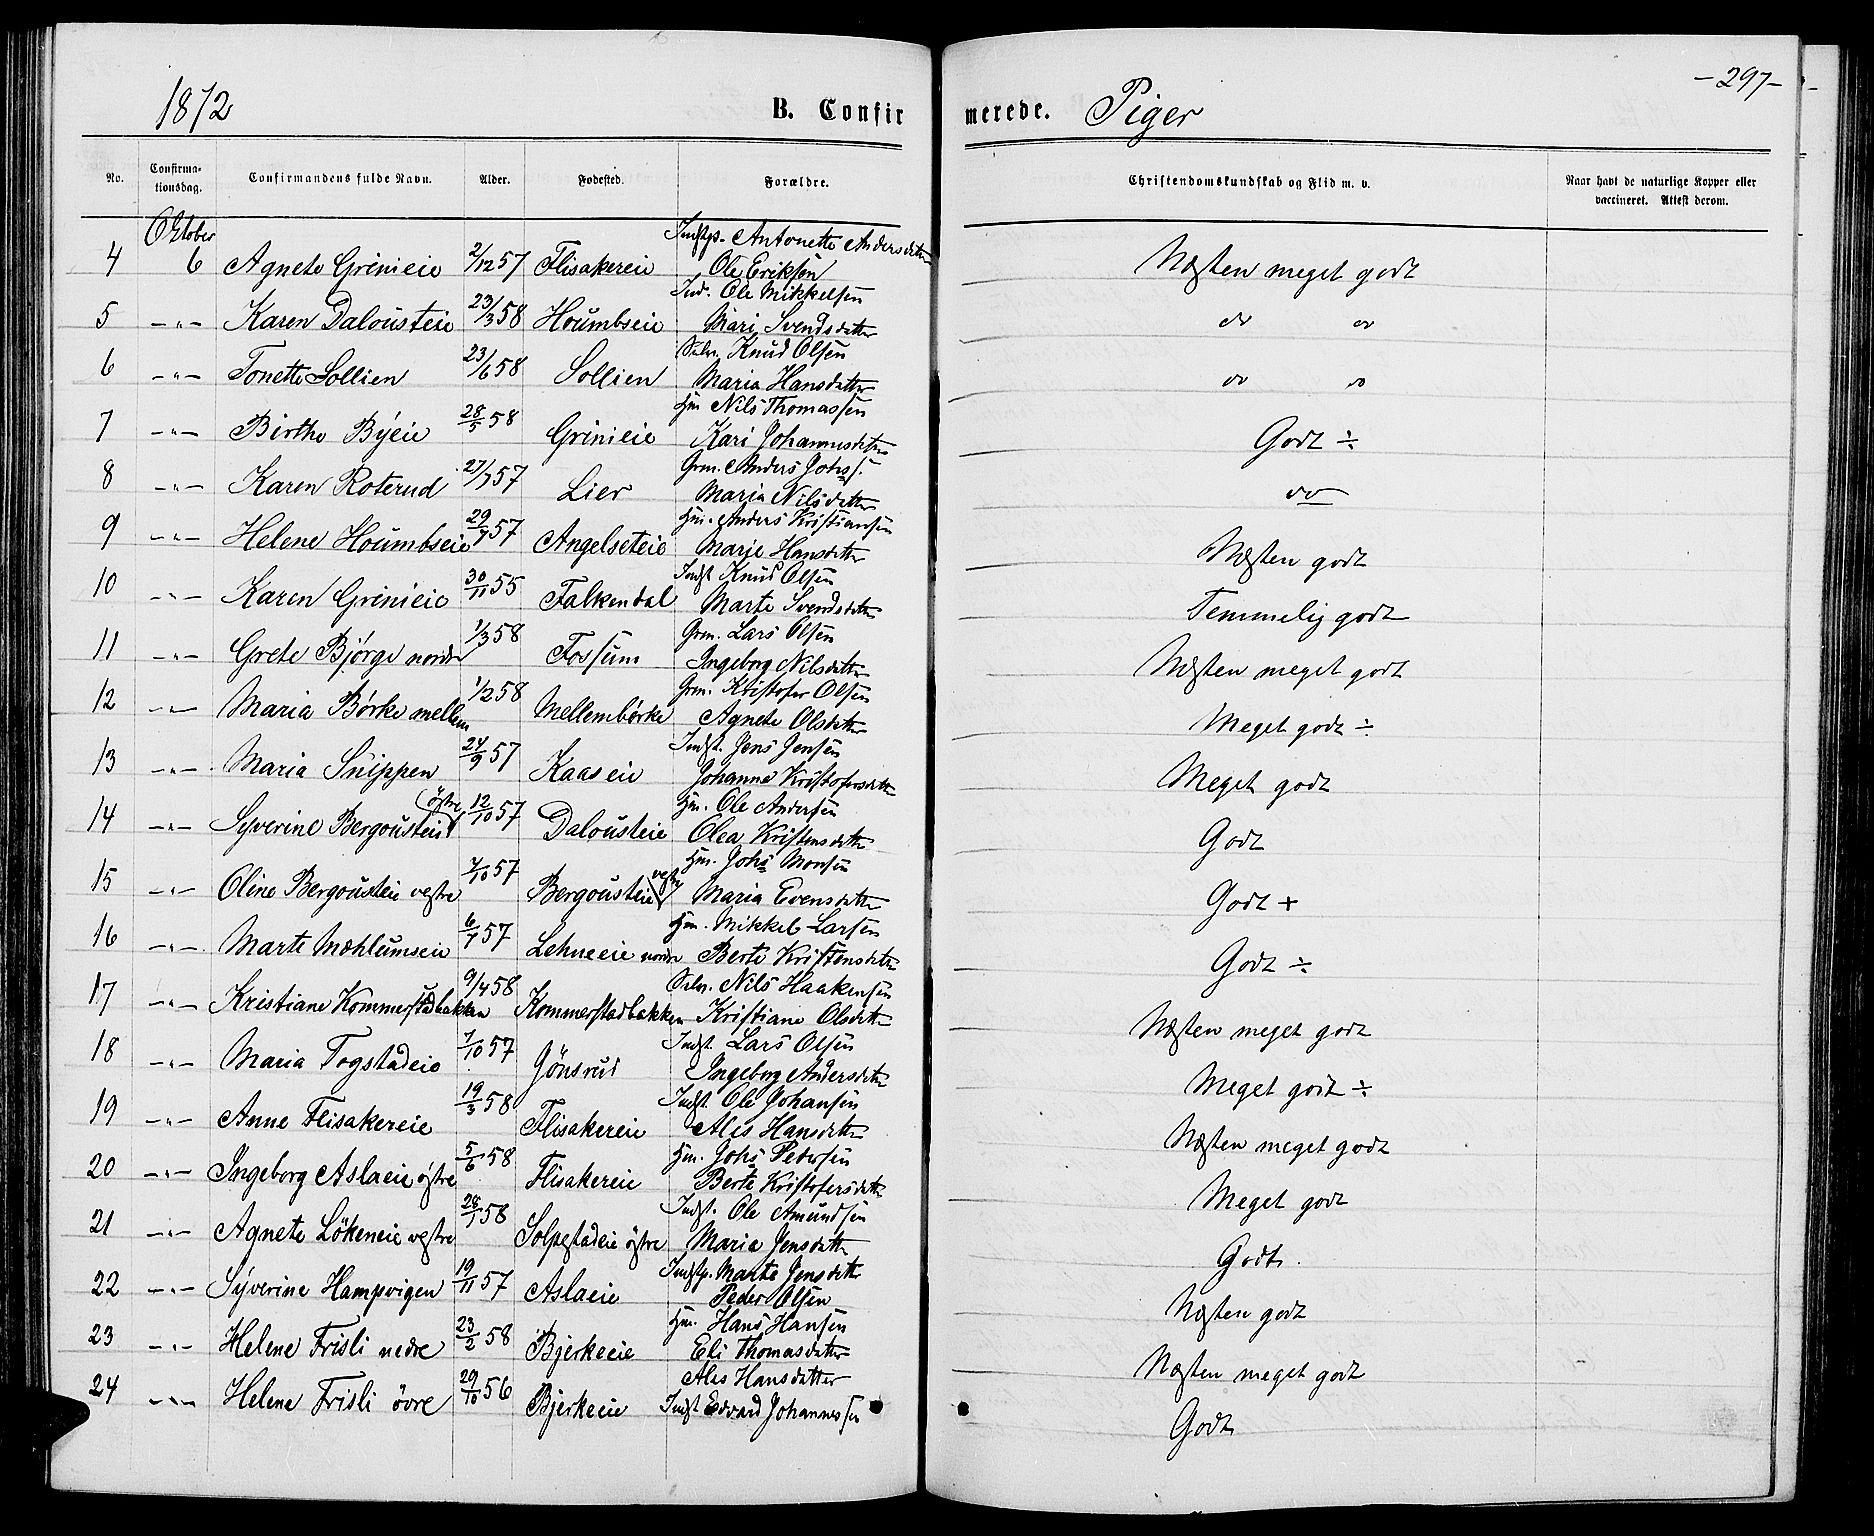 1872
B. Confir
merede. Piger
-297-
No. Confirma-tionsdag. Confirmandens fulde Navn. Alder. Fødested. Forældre. Christendomskundskab og Flid m. v. Naar havt de naturlige Kopper eller vaccineret. Attest derom.
Oktober Indstp. Antonette Andersdatter
4 6 Agnete Grinieie 2/12 57 Flisakereie Ole Eriksen Næsten meget godt
Ind. Ole Mikkelsen
5 -"- Karen Dalousteie 23/3 58 Houmbseie Mari Svendsdatter do do
Selv. Knud Olsen
6 -"- Tonette Sollien 23/6 58 Sollien Maria Hansdatter do do
Hm Nils Thomassen
7 -"- Birthe Byeie 28/5 58 Grinieie Kari Johannesdatter Godt ÷
Grm. Anders Johss.
8 -"- Karen Roterud 27/7 57 Lier Maria Nilsdatter do
Hm. Anders Kristiansen
9 -"- Helene Houmbseie 29/7 57 Angelseteie Marje Hansdatter Næsten godt
Indst Knud Olsen
10 -"- Karen Grinieie 30/11 55 Falkendal Marte Svendsdatter Temmelig godt
Grm. Lars Olsen
11 -"- Grete Bjørge nordre 1/3 58 Fossum Ingeborg Nilsdatter Næsten meget godt
Grm. Kristofer Olsen
12 -"- Maria Børke mellem 1/2 58 Mellembørke Agnete Olsdatter Meget godt ÷
Indst. Jens Jensen
13 -"- Maria Snippen 24/9 57 Kaaseie Johanna Kristofersdatter Meget godt
østre Hm. Ole Andersen
14 -"- Syverine Bergousteie 12/10 57 Dalousteie Olea Kristensdatter Godt
vestre Hm. Johs Monsen
15 -"- Oline Bergousteie vestre 7/10 57 Bergousteie Maria Evensdatter Godt +
Hm. Mikkel Larsen
16 -"- Marte Mæhlumseie 6/7 57 Lehneeie nordre Berte Kristensdatter Godt ÷
Selv. Nils Haakensen
17 -"- Kristiane Kommerstadbakken 9/4 58 Kommerstadbakken Kristiane Olsdatter Næsten meget godt
Indst. Lars Olsen
18 -"- Maria Togstadeie 7/10 57 Gönsrud Ingeborg Andersdatter Meget godt ÷
Indst. Ole Johansen
19 -"- Anne Flisakereie 19/3 58 Flisakereie Alis Hansdatter Næsten meget godt
Hm. Johs Pedersen
20 -"- Ingeborg Aslaeie østre 5/6 58 Flisakereie Berte Kristofersdatter Meget godt
Indst. Ole Amundsen
21 -"- Agnete Lökeneie vestre 28/1 58 Solpestadeie østre Maria Jensdatter Godt.
Indstp. Marte Jensdatter
22 -"- Syverine Hampvigen 19/11 57 Aslaeie Peder Olsen Næsten godt
Hm. Hans Hansen
23 -"- Helene Frisli nedre 23/2 58 Bjerkeeie Eli Thomasdatter Næsten meget godt
Ales Hansdatter
24 -"- Helene Frisli övre 29/10 56 Bjerkeeie Indst Edvard Johannessen Godt